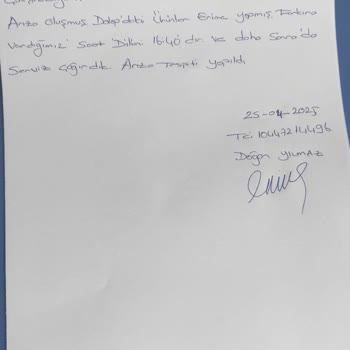 Arıza Oluşmuş Dolap'daki Ürünler Erime yapmış. Farkına
Vardığımız Saat Dilimi 16:40'dır ve daha Sonra'da
Servis Çağırdık Arıza Tespiti yapıldı
25-04-2025
Tc: 10447214496
Doğan YILMAZ